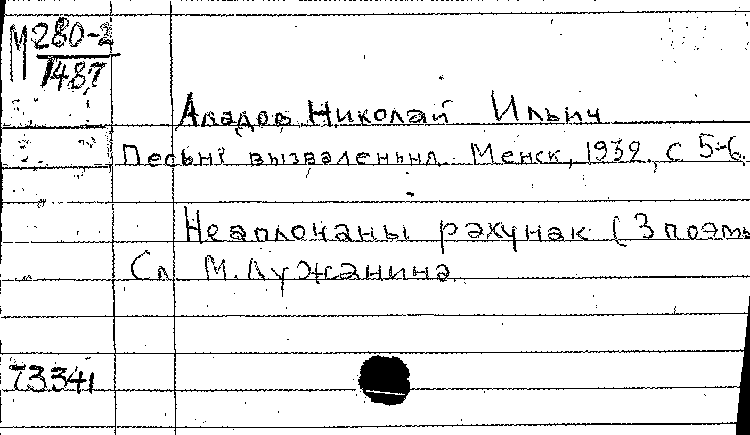 М 280-2
1487
Аладов Николай Ильич
Песьні вызваленьня. Менск, 1932, с 5-6
Неаплочаны рахунак (З поэмы
Сл М. Лужанина
73341